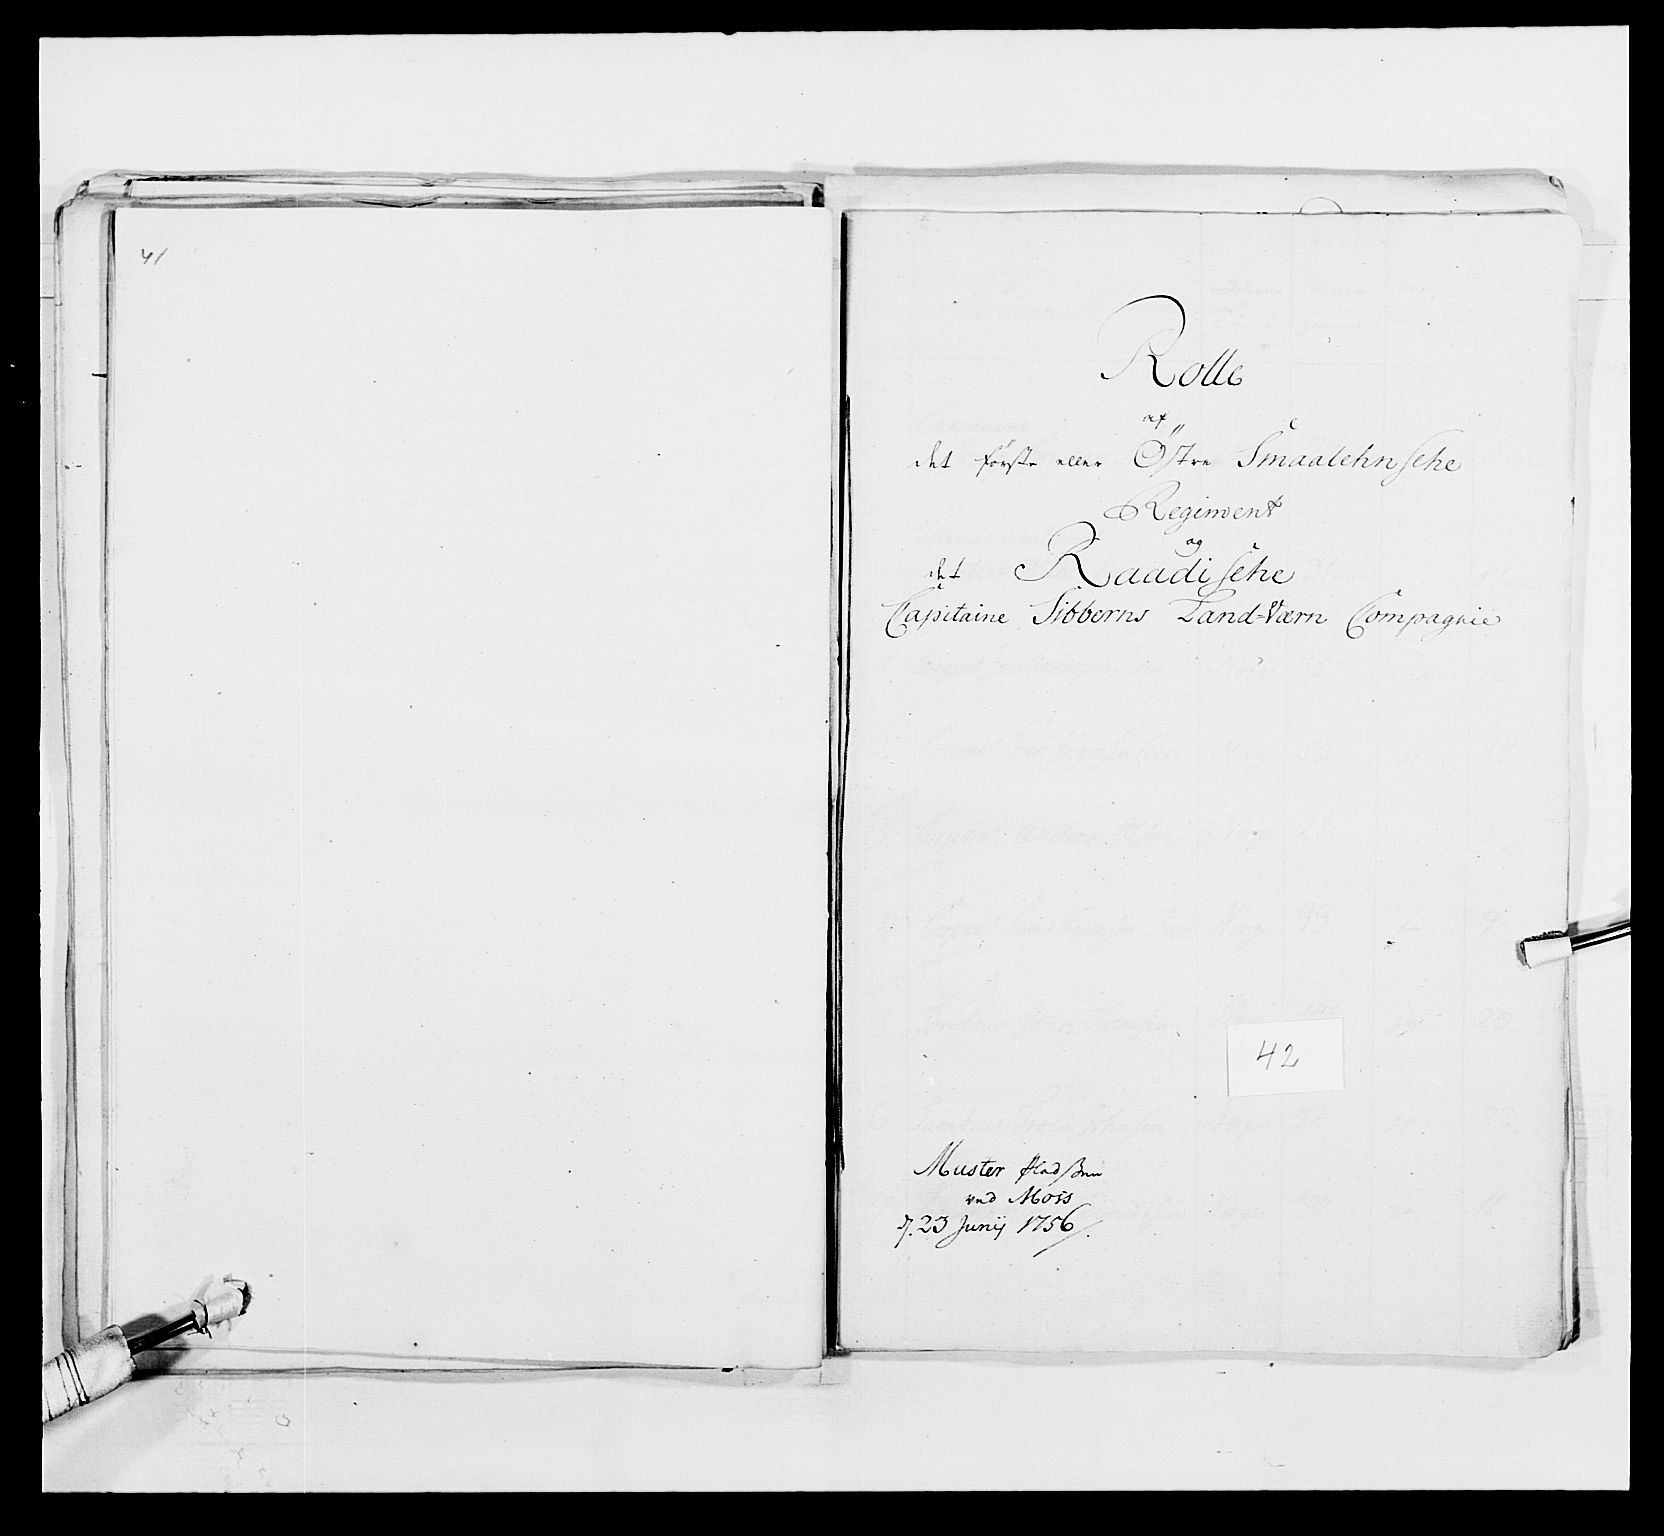 41
Rolle
af
det förste eller Östre Smaalehnsche
Regiment
og
det Raadische
Capitaine Sibberns Land-Værn Compagnie
42
Muster Pladssen
ved Moss
d. 23 Junij 1756